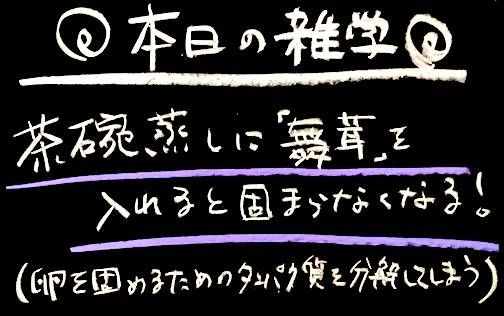 本日の雑学
茶碗蒸しに「舞茸」を
入れると固まらなくなる!
(卵を固めるためのタンパク質を分解してしまう)